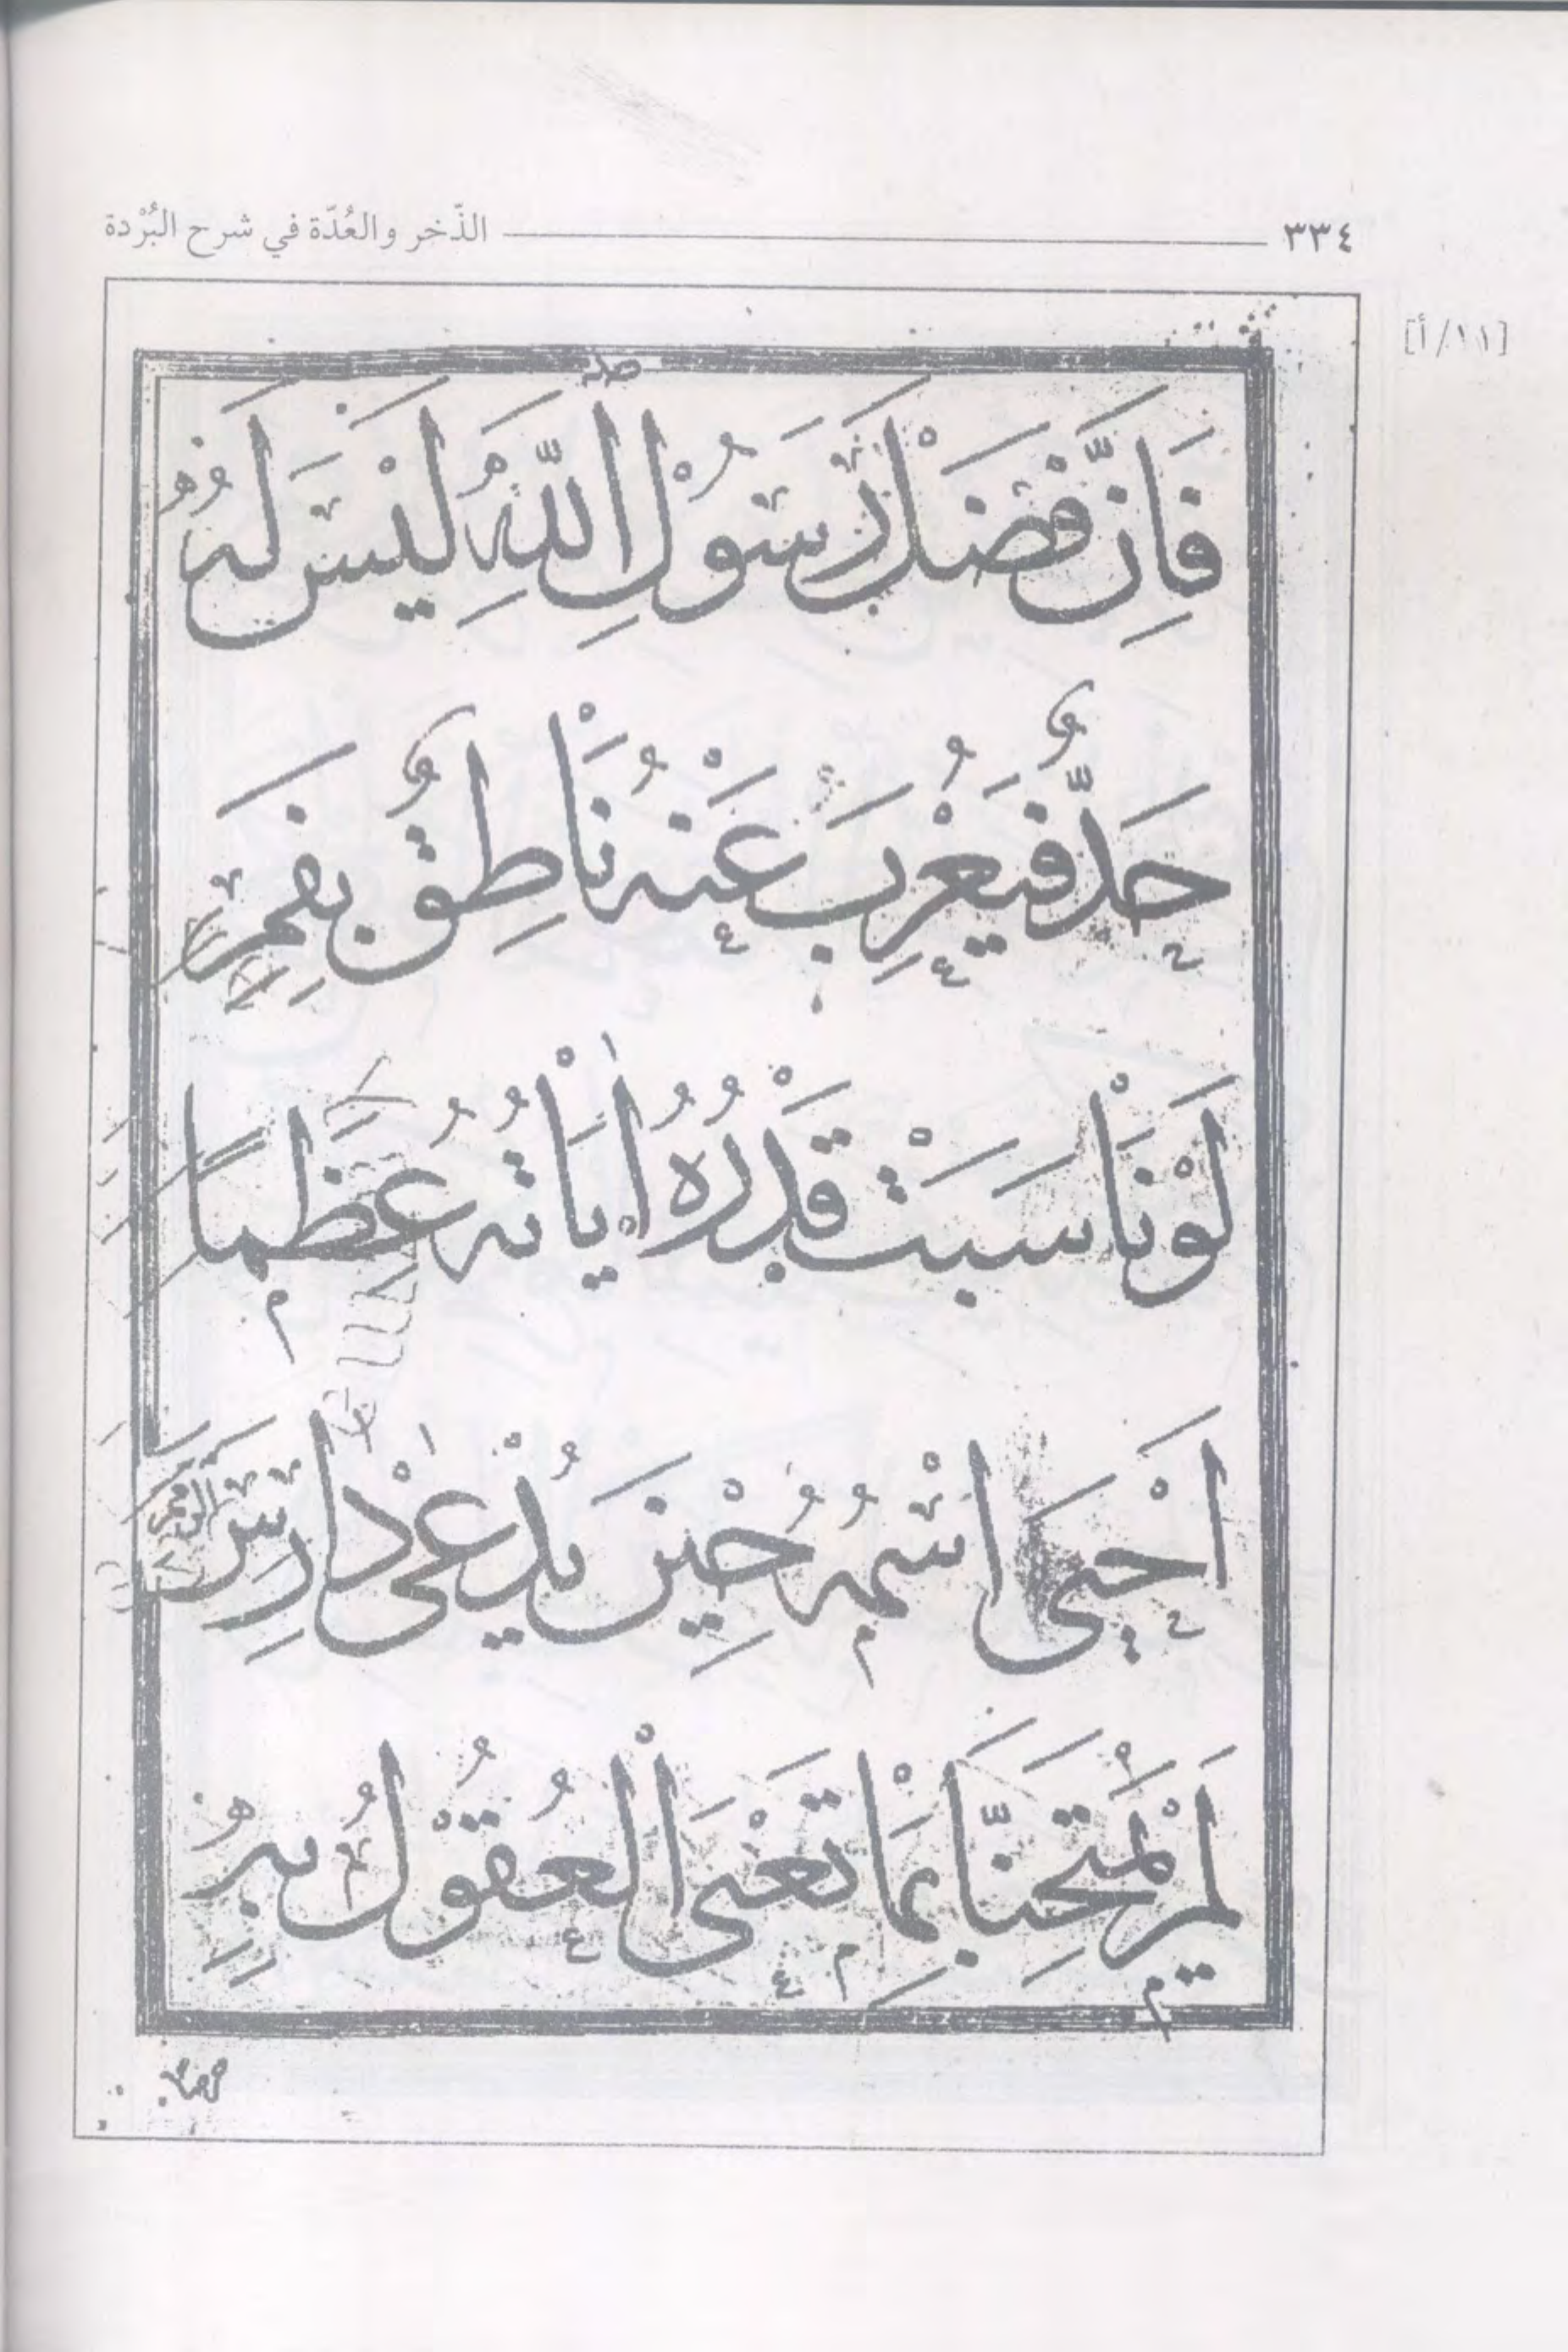 ٣٣٤ الذّخر والعُدّة في شرح البُرْدة
[١١/أ]
صله
فَاِنَّ فَضْلَ رَسُوْلِ اللّٰهِ لَيْسَ لَهُ
حَدٌّ فَيُعْرِبَ عَنْهُ نَاطِقٌ بِفَمِ
لَوْ نَاسَبَتْ قَدْرَهُ اٰيَاتُهُ عِظَمًا
اَحْيَى اسْمُهُ حِيْنَ يُدْعٰى دَارِسَ الرِّمَمِ
لَمْ يَمْتَحِنَّا بِمَا تَعْيَى الْعُقُوْلُ بِهِ
حرصا